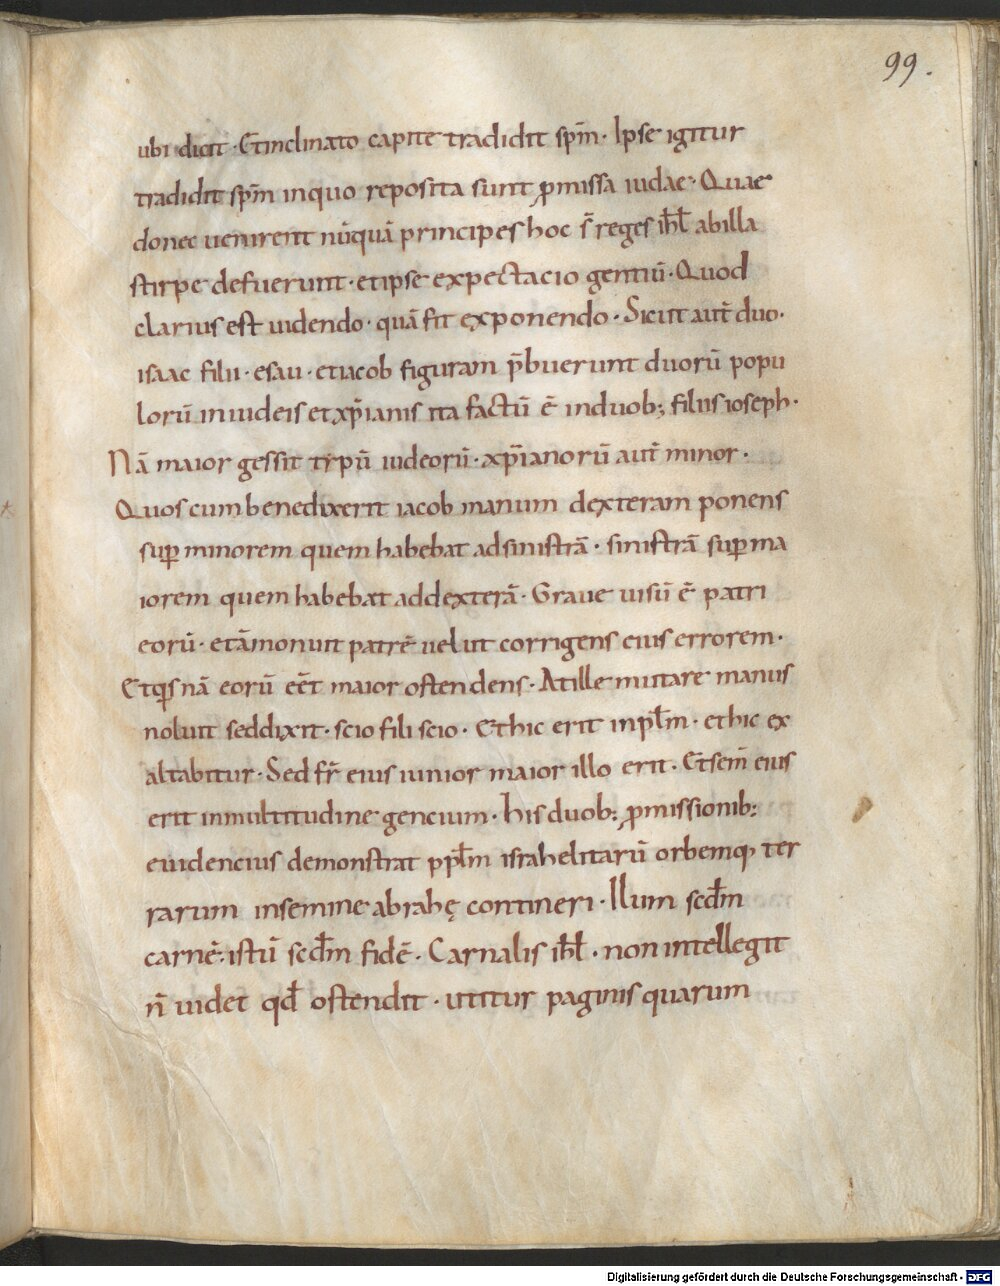 99.
ubi dicit · Et inclinato capite tradidit sp̄m · Ipse igitur
tradidit sp̄m inquo reposita sunt ꝓmissa iudae · Quae
donec uenirent nūquā principes hoc ē reges ihl̄ abilla
stirpe defuerunt · etipse expectacio gentiū · Quod
clarius est uidendo · quā fit exponendo · Sicut aut̄ duo ·
isaac filii · esau · etiacob figuram p̄buerunt duorū popu
lorū iniudeis etxp̄ianis ita factū ē induob; filiis ioseph ·
Nā maior gessit typū iudeorū · xp̄ianorū aut̄ minor ·
Quos cum benedixerit iacob manum dexteram ponens
suꝑ minorem quem habebat adsinistrā · sinistrā suꝑ ma
iorem quem habebat addexterā · Graue uisū ē patri
eorū · etāmonuit patrē uelut corrigens eius errorem ·
Et quis nā eorū eēt maior ostendens · At ille mutare manus
noluit seddixit · scio fili scio · Ethic erit inpl̄m · ethic ex
altabitur · Sed fr̄ eius iunior maior illo erit · Et sem̄ eius
erit inmultitudine gencium · his duob; ꝓmissionib;
euidencius demonstrat ppl̄m israhelitarū orbemq; ter
rarum insemine abrahę contineri · Ilum scd̄m
carnē · istū scd̄m fidē · Carnalis ihl̄ · non intellegit
n̄ uidet qd̄ ostendit · utitur paginis quarum
Digitalisierung gefördert durch die Deutsche Forschungsgemeinschaft - DFG